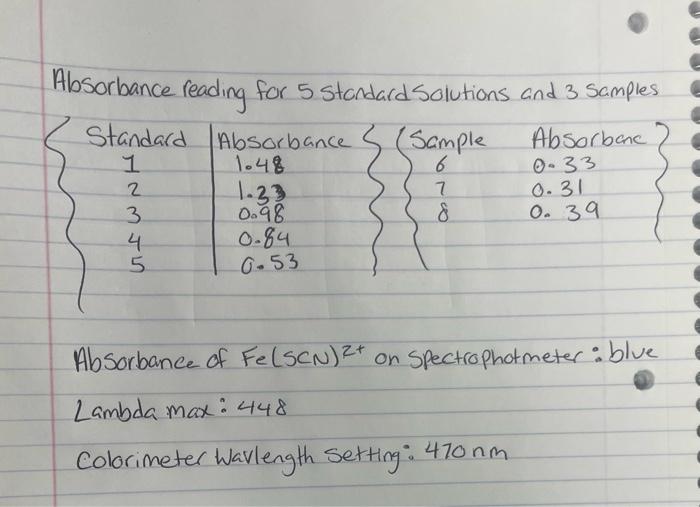 Absorbance reading for 5 Standard Solutions and 3 Samples
Standard Absorbance Sample Absorbanc
1 1.48 6 0.33
2 1.23 7 0.31
3 0.98 8 0.39
4 0.84
5 0.53
Absorbance of Fe(SCN)²⁺ on Spectrophotmeter: blue
Lambda max: 448
Colorimeter Wavlength Setting: 470nm